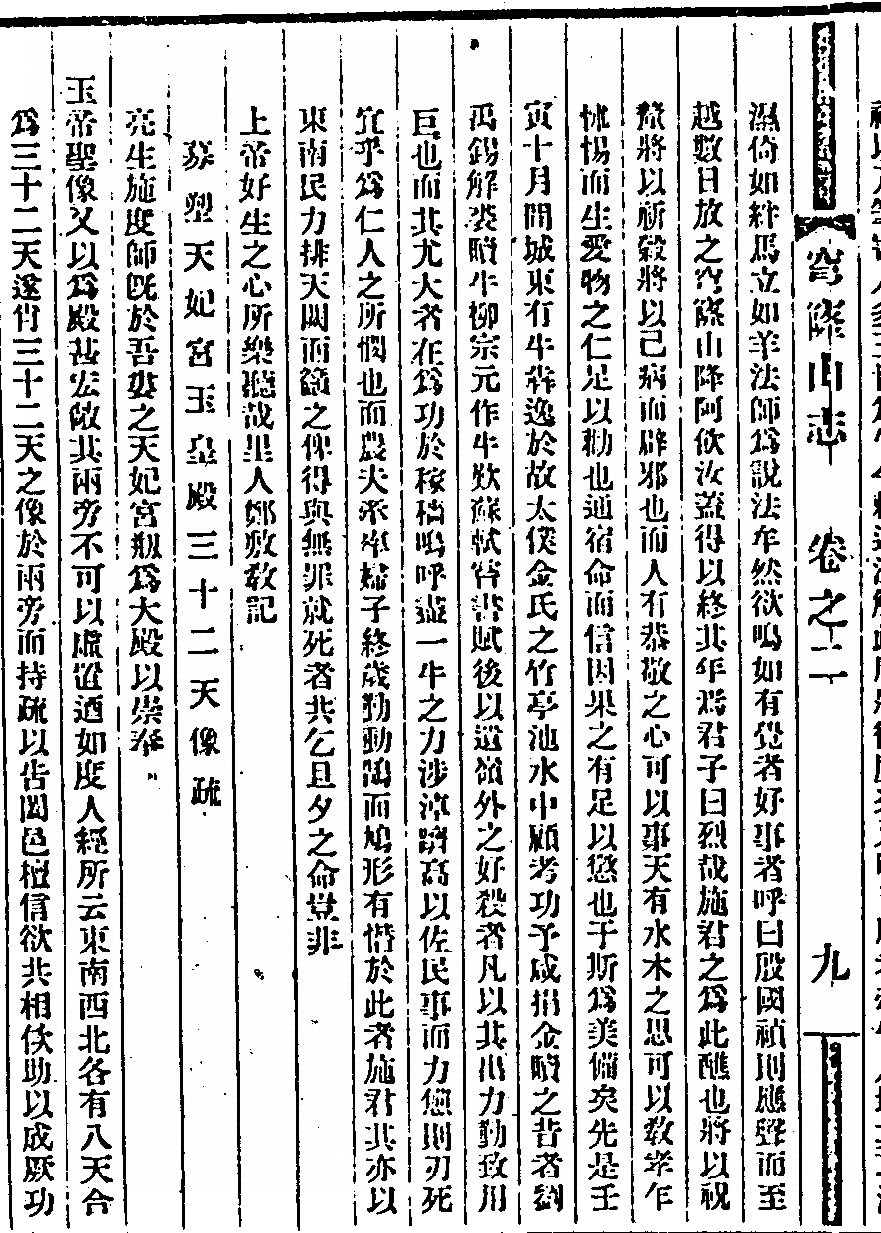 穹窿山志 卷之二 九
濕倚如絆馬立如羊法師爲說法牟然欲鳴如有覺者好事者呼曰殷國禎則應聲而至
越數日放之穹窿山降阿飲汝蓋得以終其年焉君子曰烈哉施君之爲此醮也將以祝
釐將以祈穀將以己病而辟邪也而人有恭敬之心可以事天有水木之思可以敎孝乍
怵惕而生愛物之仁足以勸也通宿命而信因果之有足以懲也于斯爲美備矣先是壬
寅十月閶城東有牛犇逸於故太僕金氏之竹亭池水中顧考功予咸捐金贖之昔者劉
禹錫解裘贖牛柳宗元作牛歎蘇軾皆書賦後以遺嶺外之好殺者凡以其出力勤致用
巨也而其尤大者在爲功於稼穡嗚呼盡一牛之力涉淖躋高以佐民事而力憊則刃死
宜乎爲仁人之所憫也而農夫率婦子終歲勤動鵠面鳩形有僭於此者施君其亦以
東南民力排天閶而籲之俾得與無罪就死者共乞旦夕之命豈非
上帝好生之心所樂聽哉里人鄭敷敎記
募塑天妃宮玉皇殿三十二天像疏
亮生施度師旣於吾婁之天妃宮剏爲大殿以崇奉
玉帝聖像又以爲殿甚宏敞其兩旁不可以虛置迺如度人經所云東南西北各有八天合
爲三十二天遂肖三十二天之像於兩旁而持疏以告闔邑檀信欲共相佽助以成厥功